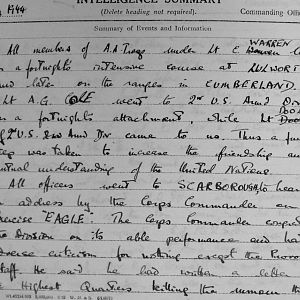 INTELLIGENCE SUMMARY
1944
(Delete heading not required).
Commanding Offic
Summary of Events and Information
All members of A.A Troop under Lt E WARREN
a fortnights intensive course at LULWORT
and later on the ranges in CUMBERLAND.
Lt A.G. COLE went to 2nd U.S. Armd D
for a fortnights attachment, while Lt
of 2nd U.S. Armd Div came to us. Thus a fur
step was taken to increase the friendship an
mutual understanding of the United Nations.
All officers went to SCARBOROUGH to hear
an address by the Corps Commander on
exercise "EAGLE". The Corps Commander congra
the Division on its able performance and ha
adverse criticism for nothing except the Provo
staff. He said he had written a letter
Highest Quarters killing the rumour th